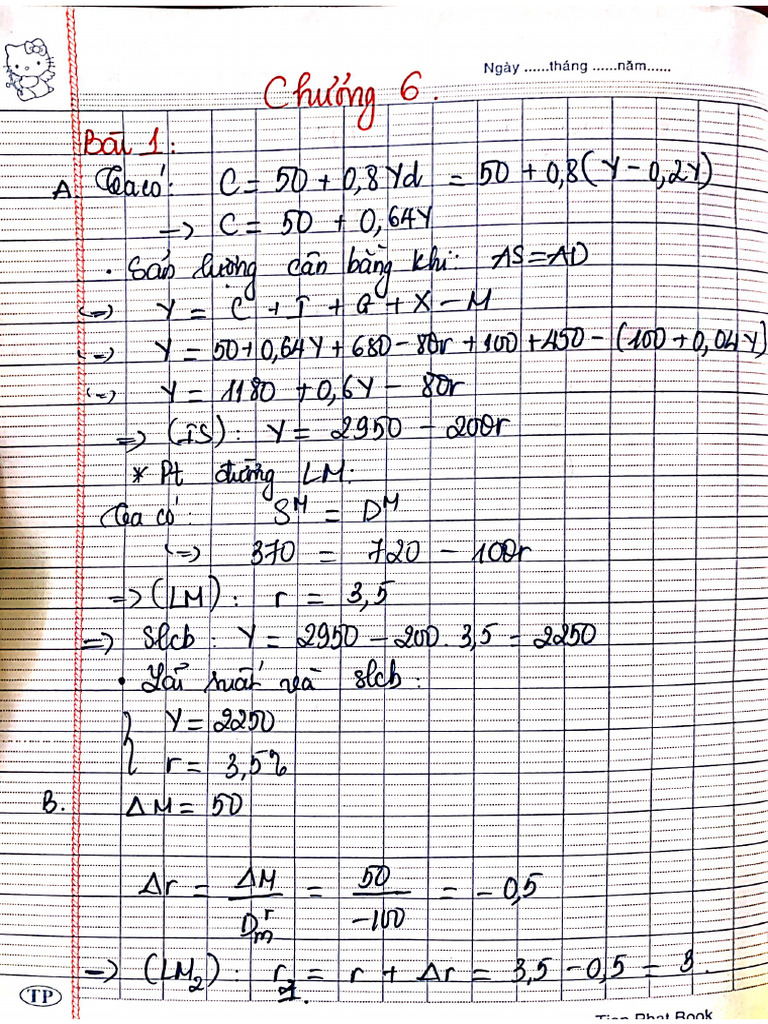 Ngày ......tháng ......năm......
Chương 6.
Bài 1:
A. Ta có: C = 50 + 0,8Yd = 50 + 0,8(Y - 0,2Y)
-> C = 50 + 0,64Y
• Sản lượng cân bằng khi: AS = AD
(=) Y = C + I + G + X - M
(=) Y = 50 + 0,64Y + 680 - 80r + 100 + 450 - (100 + 0,04Y)
(=) Y = 1180 + 0,6Y - 80r
=> (IS): Y = 2950 - 200r
* Pt đường LM:
Ta có: Sᴹ = Dᴹ
(=) 370 = 720 - 100r
=> (LM): r = 3,5
=> slcb: Y = 2950 - 200.3,5 = 2250
• Lãi suất và slcb:
{ Y = 2250
r = 3,5%
B. ΔM = 50
Δr = ΔM / Dₘʳ = 50 / -100 = -0,5
=> (LM₂): r₂ = r + Δr = 3,5 - 0,5 = 3.
TP
Tien Phat Book